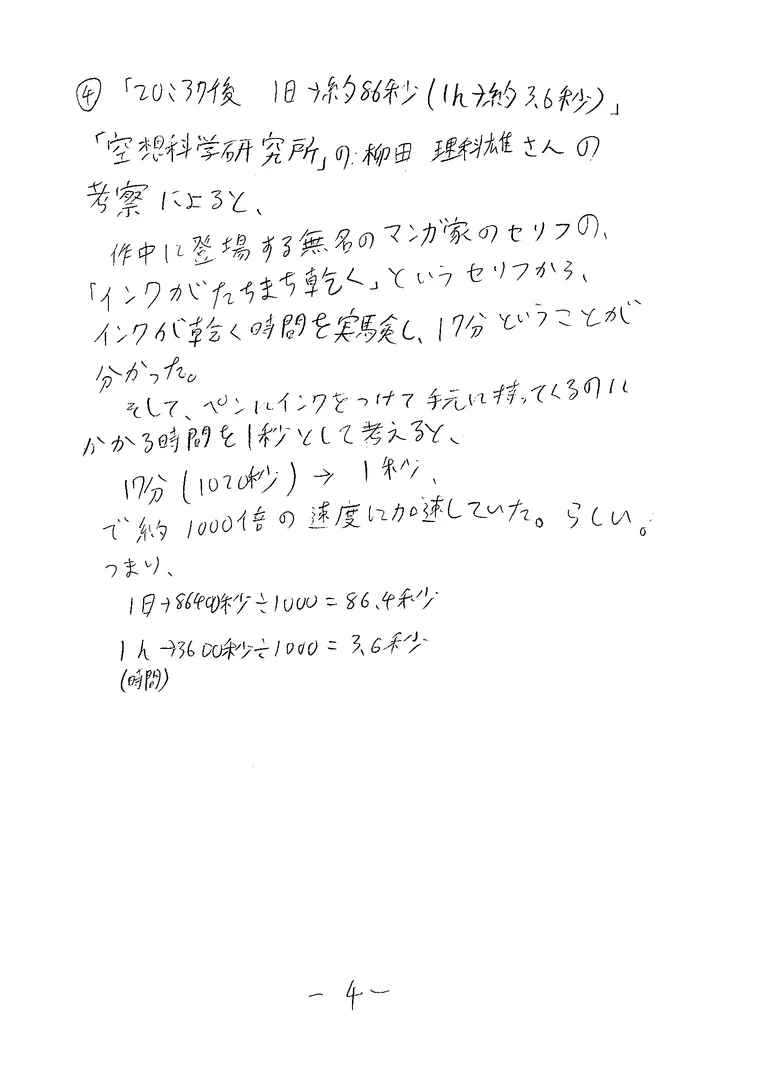 ④「20:37後 1日→約86秒(1h→約3.6秒)」
「空想科学研究所」の柳田 理科雄さんの
考察によると、
作中に登場する無名のマンガ家のセリフの、
「インクがたちまち乾く」というセリフから、
インクが乾く時間を実験し、17分ということが
分かった。
そして、ペンにインクをつけて手元に持ってくるのに
かかる時間を1秒として考えると、
17分(1020秒)→ 1秒、
で約1000倍の速度に加速していた。らしい。
つまり、
1日→86400秒÷1000=86.4秒
1h→3600秒÷1000=3.6秒
(時間)
-4-